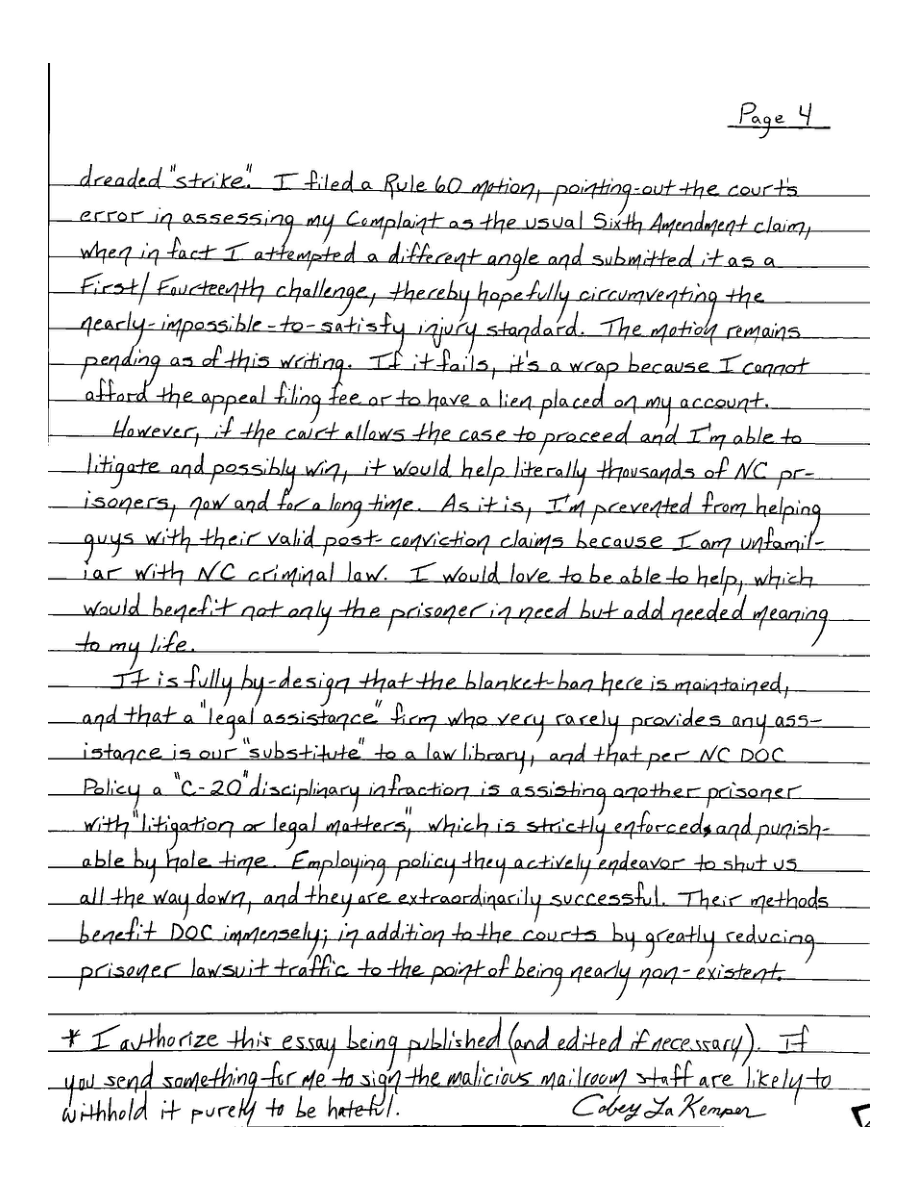 Page 4
dreaded "strike". I filed a Rule 60 motion, pointing-out the court's
error in assessing my Complaint as the usual Sixth Amendment claim,
when in fact I attempted a different angle and submitted it as a
First/Fourteenth challenge, thereby hopefully circumventing the
nearly-impossible-to-satisfy injury standard. The motion remains
pending as of this writing. If it fails, it's a wrap because I cannot
afford the appeal filing fee or to have a lien placed on my account.
However, if the court allows the case to proceed and I'm able to
litigate and possibly win, it would help literally thousands of NC pr-
isoners, now and for a long time. As it is, I'm prevented from helping
guys with their valid post-conviction claims because I am unfamil-
iar with NC criminal law. I would love to be able to help, which
would benefit not only the prisoner in need but add needed meaning
to my life.
It is fully by-design that the blanket-ban here is maintained,
and that a "legal assistance" firm who very rarely provides any ass-
istance is our "substitute" to a law library, and that per NC DOC
Policy a "C-20" disciplinary infraction is assisting another prisoner
with "litigation or legal matters", which is strictly enforced, and punish-
able by hole time. Employing policy they actively endeavor to shut us
all the way down, and they are extraordinarily successful. Their methods
benefit DOC immensely; in addition to the courts by greatly reducing
prisoner lawsuit traffic to the point of being nearly non-existent.
* I authorize this essay being published (and edited if necessary). If
you send something for me to sign the malicious mailroom staff are likely to
withhold it purely to be hateful. Cobey LaKemper